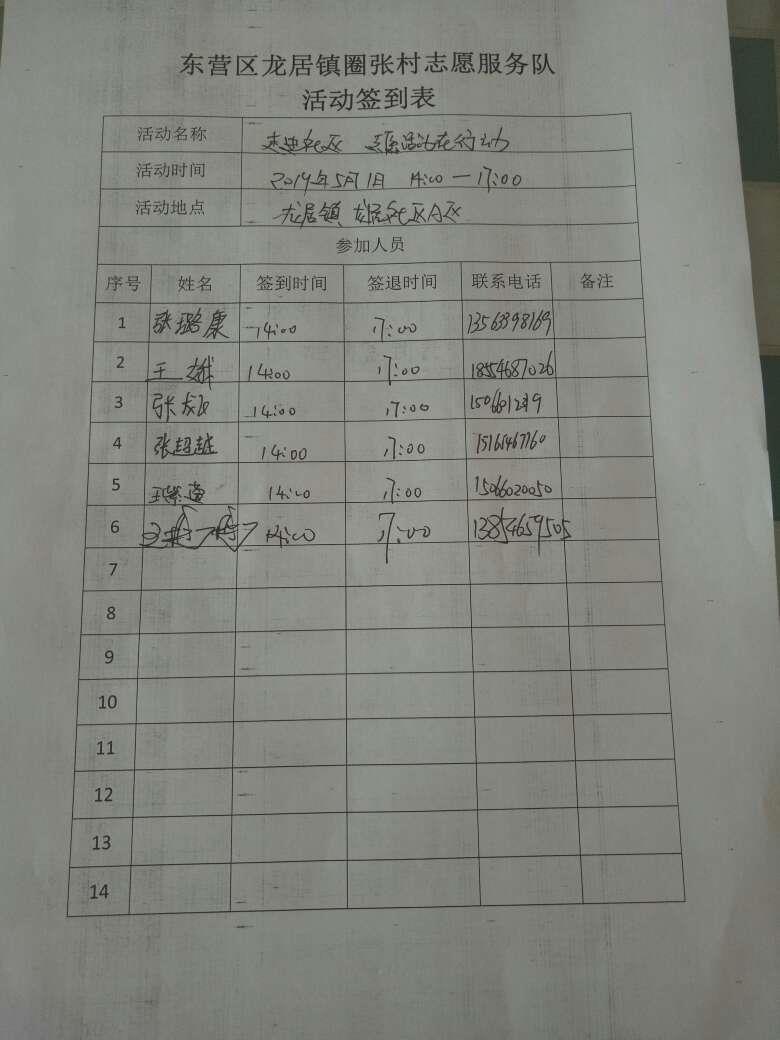 东营区龙居镇圈张村志愿服务队
活动签到表
活动名称 走进社区 志愿活动在行动
活动时间 2019年5月1日 14:00—17:00
活动地点 龙居镇 社区A区
参加人员
序号 姓名 签到时间 签退时间 联系电话 备注
1 张璐康 14:00 17:00 13563398169
2 王 14:00 17:00 18554687026
3 张 14:00 17:00
4 张超越 14:00 17:00
5 14:00 17:00 15066020050
6 14:00 17:00 13854659505
7
8
9
10
11
12
13
14